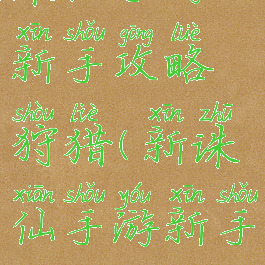 xīn shǒu gōng lüè
新手攻略
shòu liè xīn zhū
狩猎(新诛
xiān shǒu yóu xīn shǒu
仙手游新手